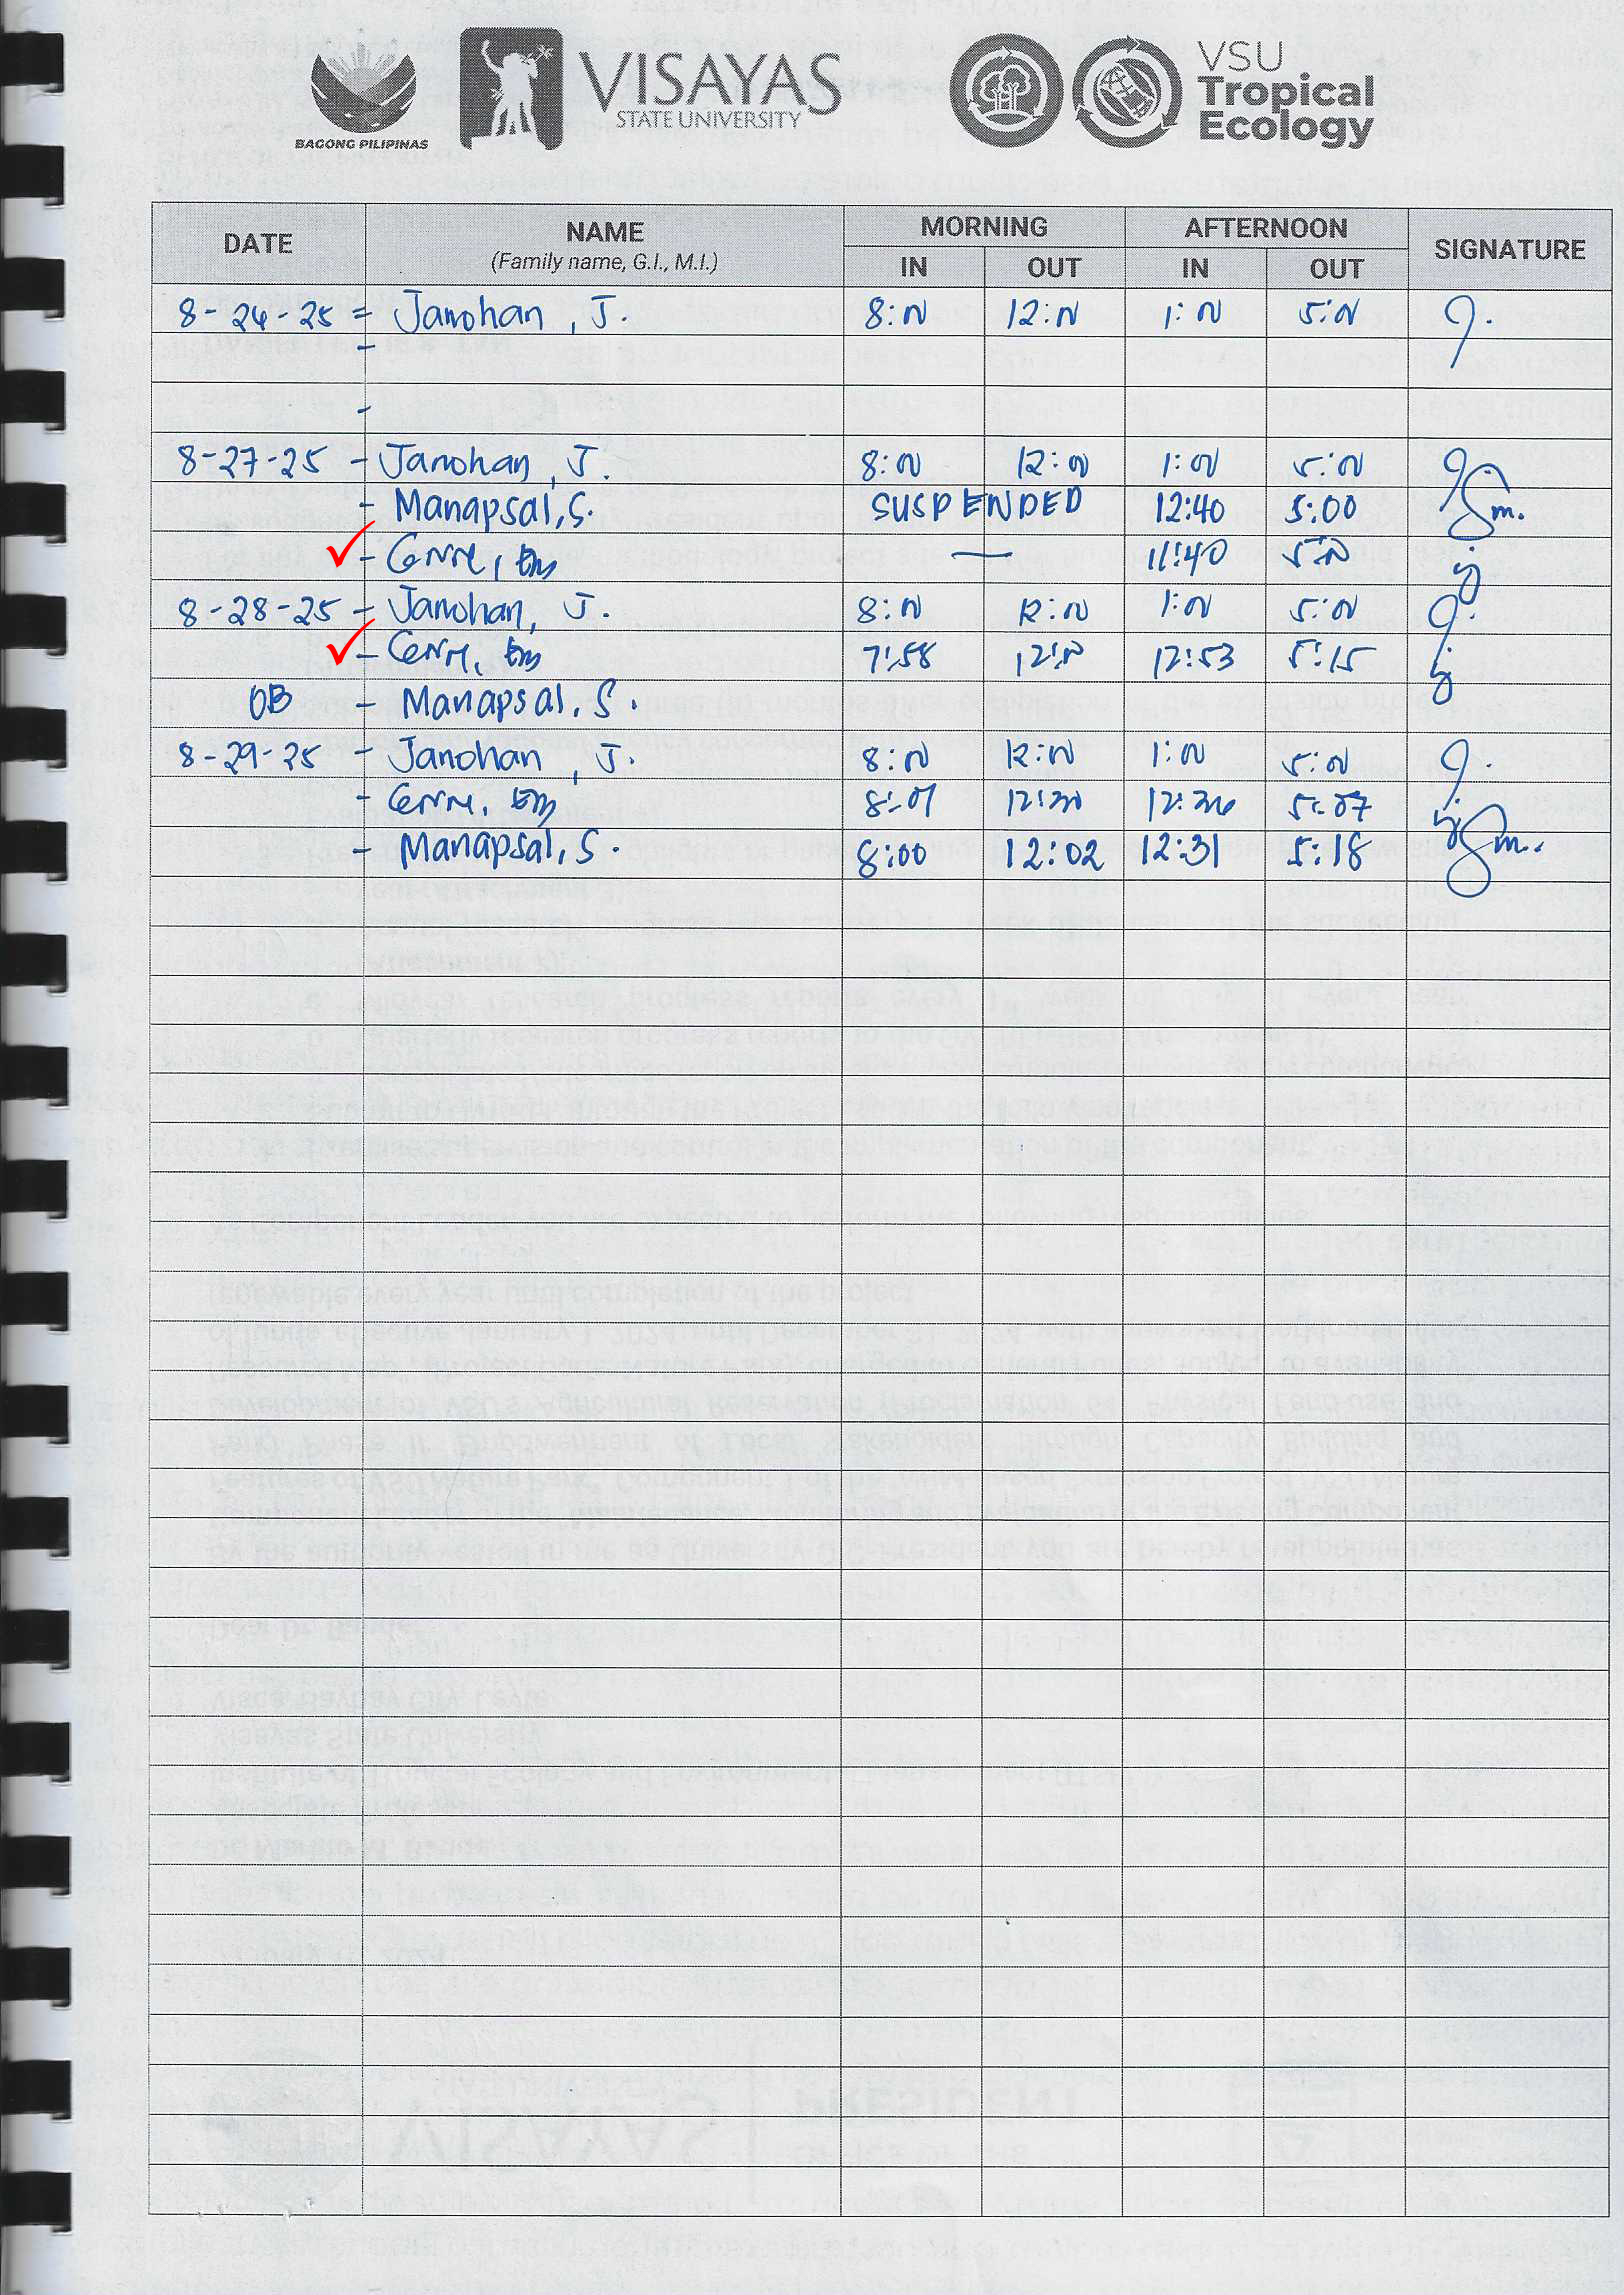 BAGONG PILIPINAS
VISAYAS
STATE UNIVERSITY
VSU
Tropical
Ecology
DATE NAME MORNING AFTERNOON SIGNATURE
(Family name, G.I., M.I.) IN OUT IN OUT
8-26-25 = Janohan, J. 8:00 12:00 1:00 5:00
-
-
8-27-25 - Janohan, J. 8:00 12:00 1:00 5:00
- Manapsal, S. SUSPENDED 12:40 5:00 Sm.
✓ - — 11:40 5:00
8-28-25 - Janohan, J. 8:00 12:00 1:00 5:00
✓ - 7:58 12:00 12:53 5:15
OB - Manapsal, S.
8-29-25 - Janohan, J. 8:00 12:00 1:00 5:00
- 5:07
- Manapsal, S. 8:00 12:02 12:31 5:18 Sm.